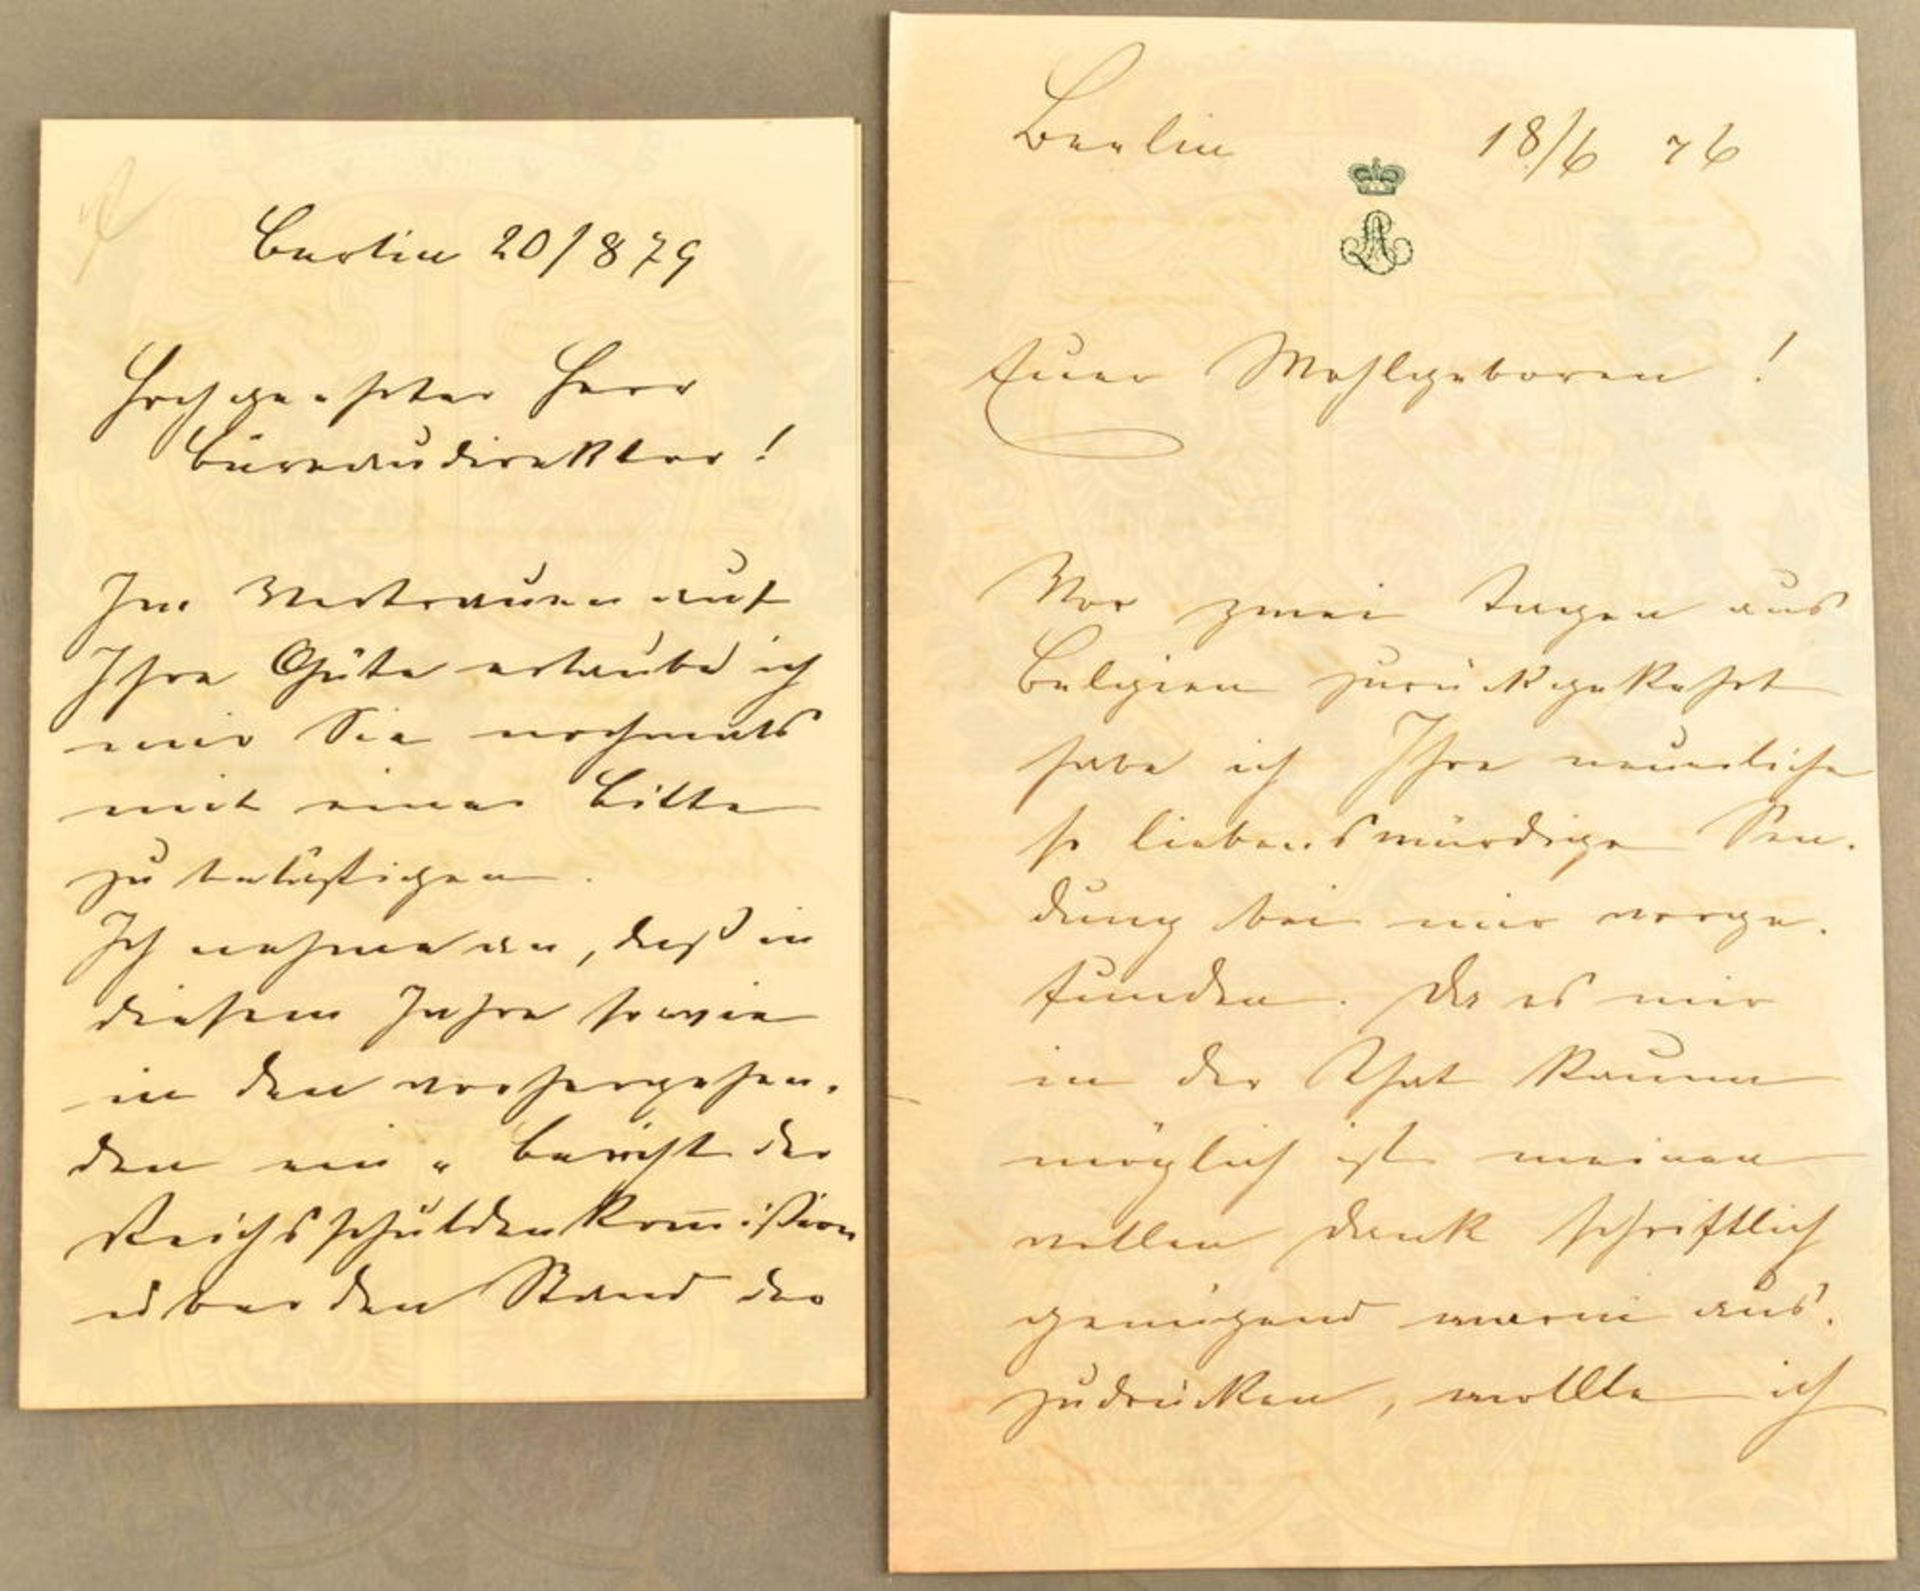 Berlin 20/8 79
Hochgeehrter Herr
Büreaudirektor!
Im Vertrauen auf
Ihre Güte erlaube ich
mir Sie nochmals
mit einer Bitte
zu belästigen.
Ich nehme an, daß in
diesem Jahre sowie
in den vorhergehen-
den ein „Bericht der
Reichsschuldenkom̅ission
über den Stand der
Berlin 18/6 76
Euer Wohlgeboren!
Vor zwei Tagen aus
Belgien zurückgekehrt
habe ich Ihre neuerliche
so liebenswürdige Sen-
dung bei mir vorge-
funden. Da es mir
in der That kaum
möglich ist meinen
vollen Dank schriftlich
genügend warm aus-
zudrücken, wollte ich